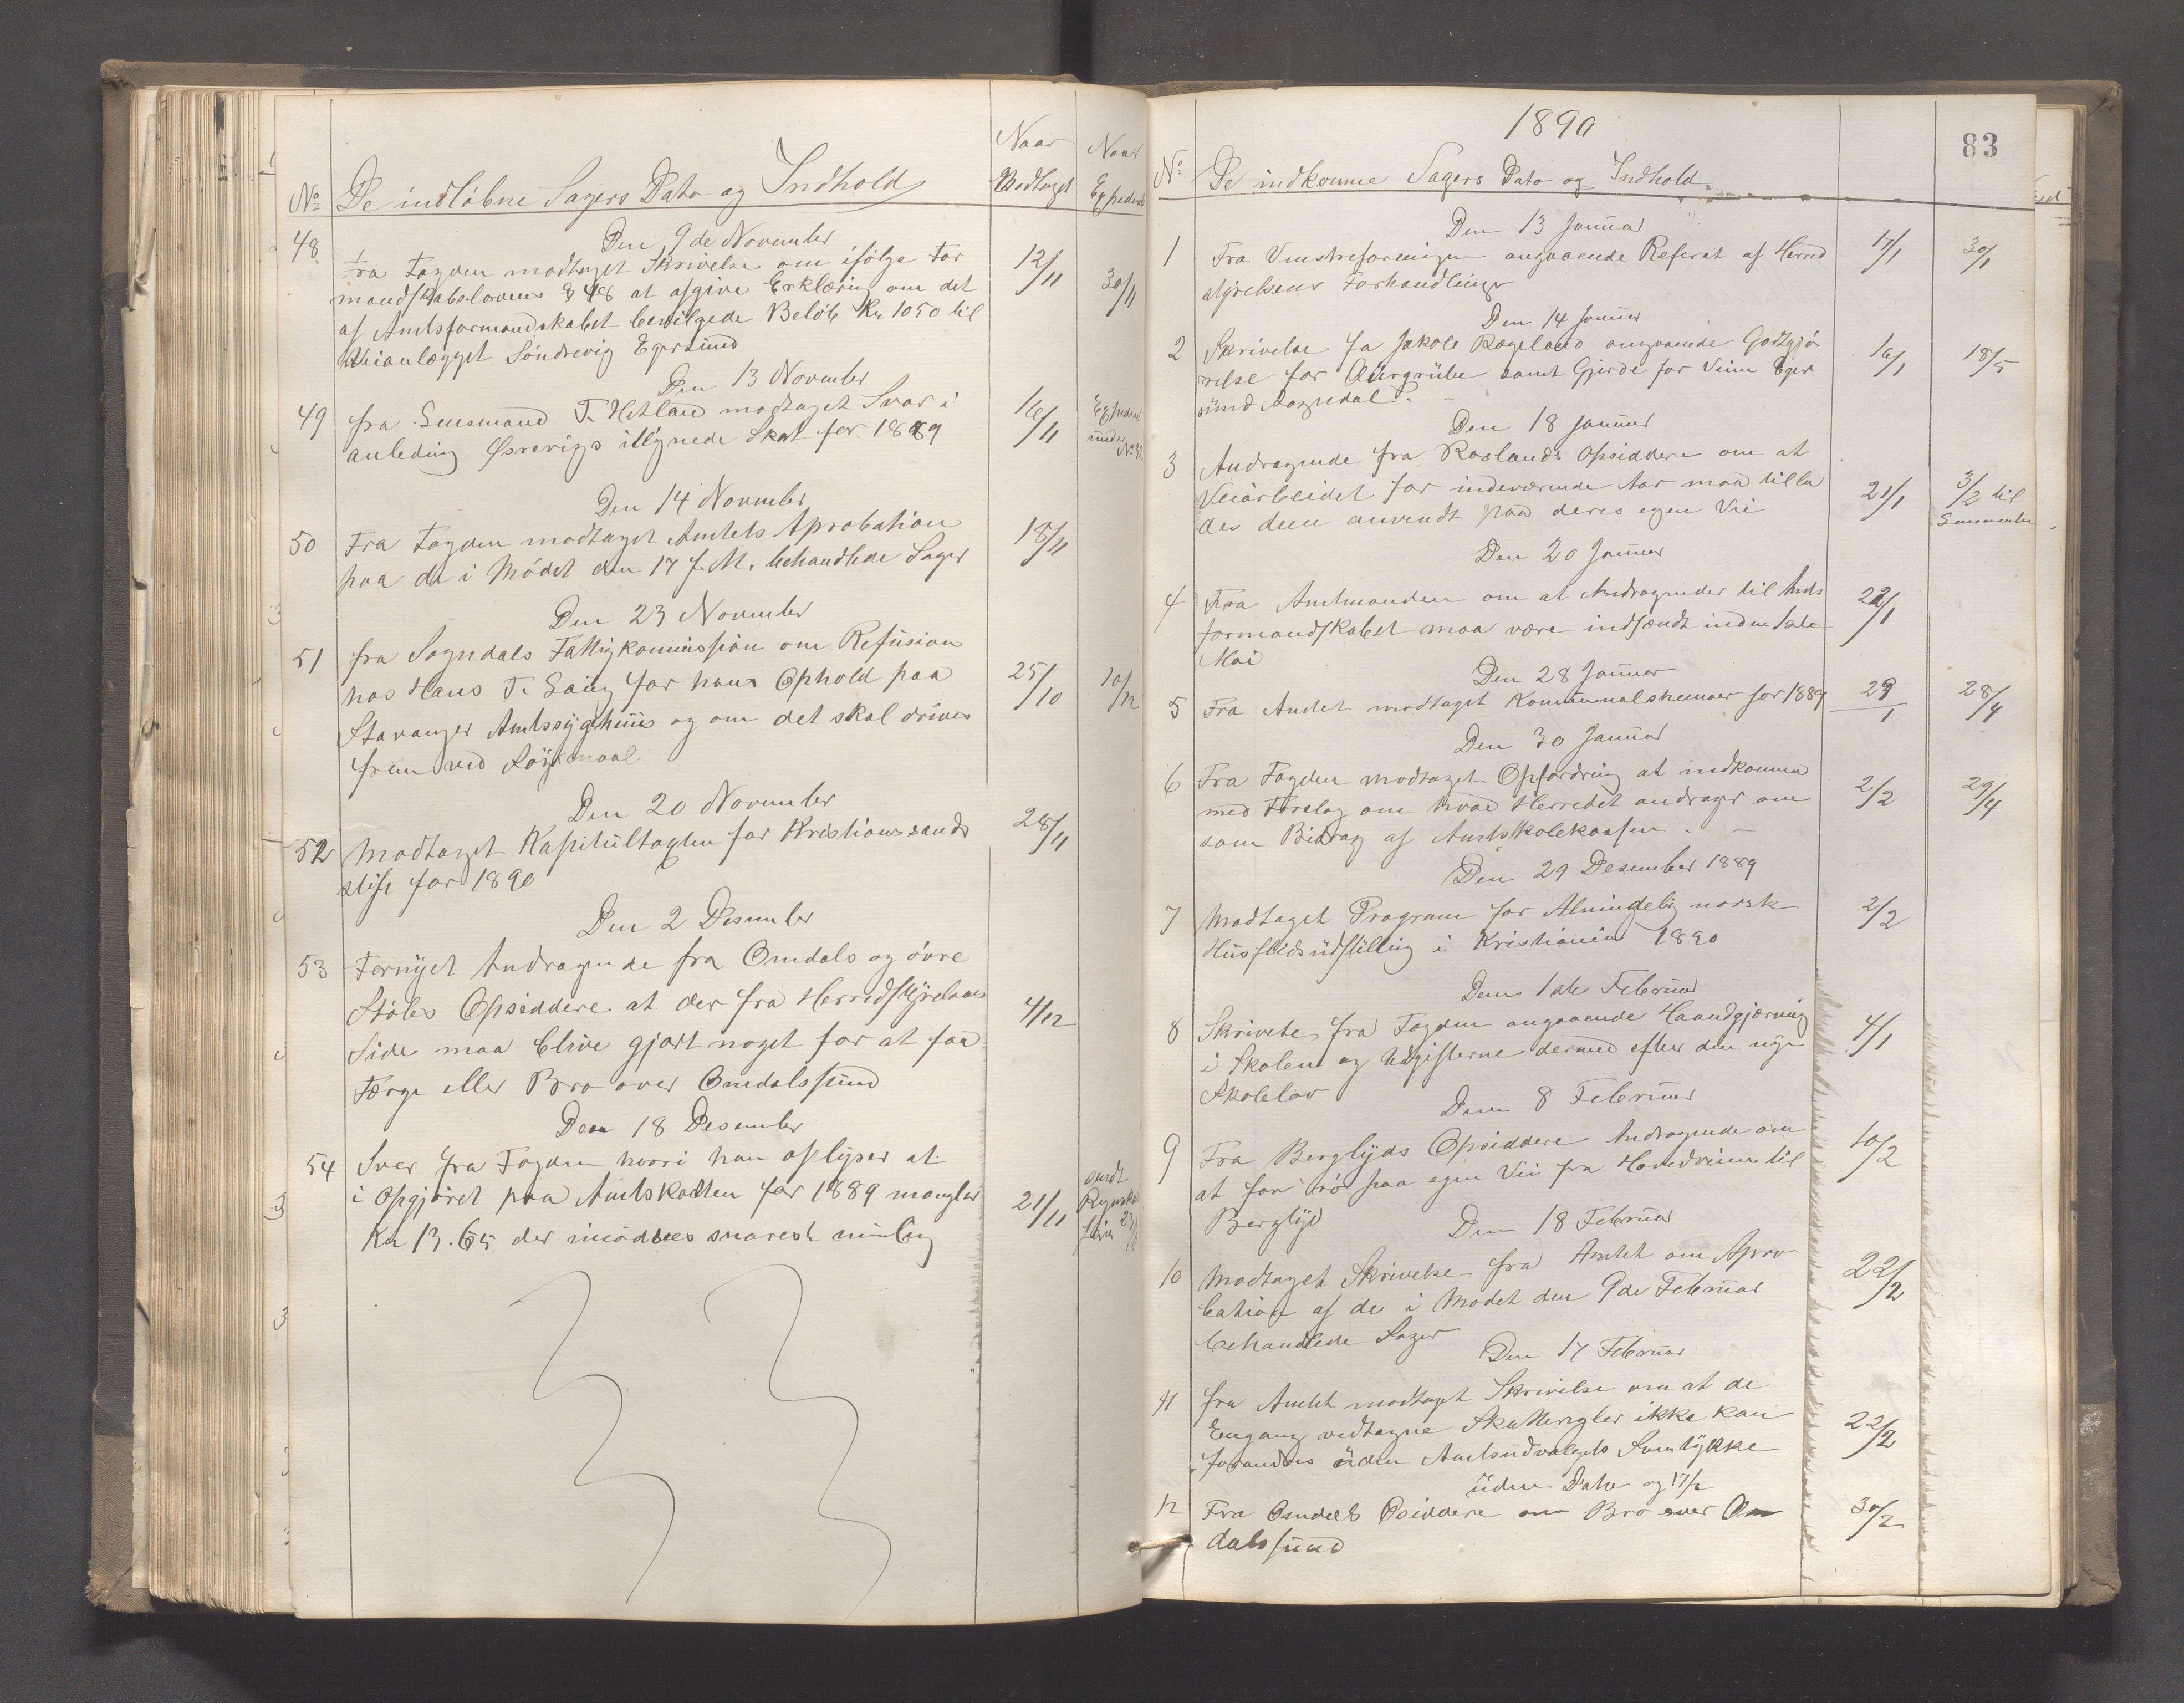 Naar Naar
No De indløbne Sagers Dato og Indhold Modtaget Expederet
Den 9de November
48 Fra Fogden modtaget Skrivelse om ifølge For
mandskabslovens § 48 at afgive Erklæring om det 12/11 30/11
af Amtsformandskabet bevilgede Beløb Kr 1050 til
Veianlægget Søndrevig Egersund
Den 13 November
49 fra Lensmand T. Hetland modtaget Svar i 16/11 Expederet
anleding ilignede Skat for 1889 under No 42
Den 14 November
50 Fra Fogden modtaget Amtets Aprobation 18/11
paa de i Mødet den 17 f. M. behandlede Sager
Den 23 November
51 fra Sogndals Fattigkommission om Refusion
hos Hans T. for hans Ophold paa 25/10 10/12
Stavanger Amtssygehuus og om det skal drives
frem ved Søgsmaal
Den 20 November
52 Modtaget Kapitultaxten for Kristianssands 28/11
stift for 1890
Den 2 Desember
53 Fornyet Andragende fra Omdals og øvre
Støles Opsiddere at der fra Herredstyrelsens 4/12
Side maa blive gjort noget for at faa
Færge eller Bro over Omdalssund
Den 18 Desember
54 Svar fra Fogden hvori han oplyser at sendt
i Opgjøret paa Amtskatten for 1889 mangler 21/11
Kr 13.65 der imødsees snarest mulig
1890 83
No De indkomne Sagers Dato og Indhold
Den 13 Januar
1 Fra Venstreforeningen angaaende Referat af Herred 17/1 30/1
styrelsens Forhandlinger
Den 14 Januar
2 Skrivelse fa Jakob Rægeland angaaende Godtgjø 16/1 18/5
relse for Aurgrube samt Gjerde for Veien Eger
sund Sogndal.
Den 18 Januar
3 Andragende fra Roslands Opsiddere om at
Veiarbeidet for indeværende Aar maa tilla 21/1 3/2 til
des dem anvendt paa deres egen Vei Lensmanden
Den 20 Januar
4 Fra Amtmanden om at Andragender til Amts 22/1
formandskabet maa være indsændt inden 1ste
Mai
Den 28 Januar
5 Fra Amtet modtaget Kommunalskemaer for 1889 29/1 28/4
Den 30 Januar
6 Fra Fogden modtaget Opfordring at indkomme
med Forslag om hvad Herredet andrager om 2/2 29/4
som Bidrag af Amtsskolekassen. -
Den 29 Desember 1889
7 Modtaget Program for Almindelig norsk 2/2
Husflidsudstilling i Kristiania 1890
Den 1ste Februar
8 Skrivelse fra Fogden angaaende Haandgjærning 4/1
i Skolen og Udgifterne dermed efter den nye
Skolelov
Den 8 Februar
9 Fra Berglyds Opsiddere Andragende om 10/2
at faa paa egen Vei fra Hovedveien til
Berglyd
Den 18 Februar
10 Modtaget Skrivelse fra Amtet om Apro 22/2
bation af de i Mødet den 9de Februar
behandlede Sager
Den 17 Februar
11 fra Amtet modtaget Skrivelse om at de
Engang vedtagne Skatteregler ikke kan 22/2
forandres uden Amtsudvalgets Samtykke
uden Dato og 17/2
12 Fra Omdals Osiddere om Bro over Om 30/2
dalssund